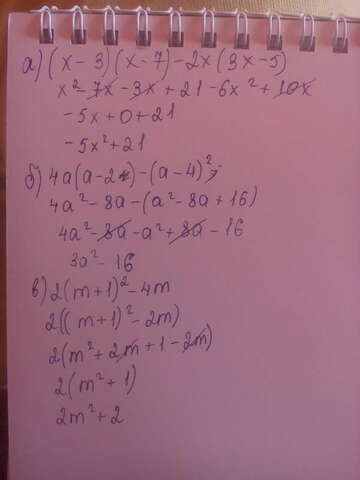 а) (x-3)(x-7)-2x(3x-5)
x²-7x-3x+21-6x²+10x
-5x+0+21
-5x²+21
б) 4a(a-2)-(a-4)²
4a²-8a-(a²-8a+16)
4a²-8a-a²+8a-16
3a²-16
в) 2(m+1)²-4m
2((m+1)²-2m)
2(m²+2m+1-2m)
2(m²+1)
2m²+2